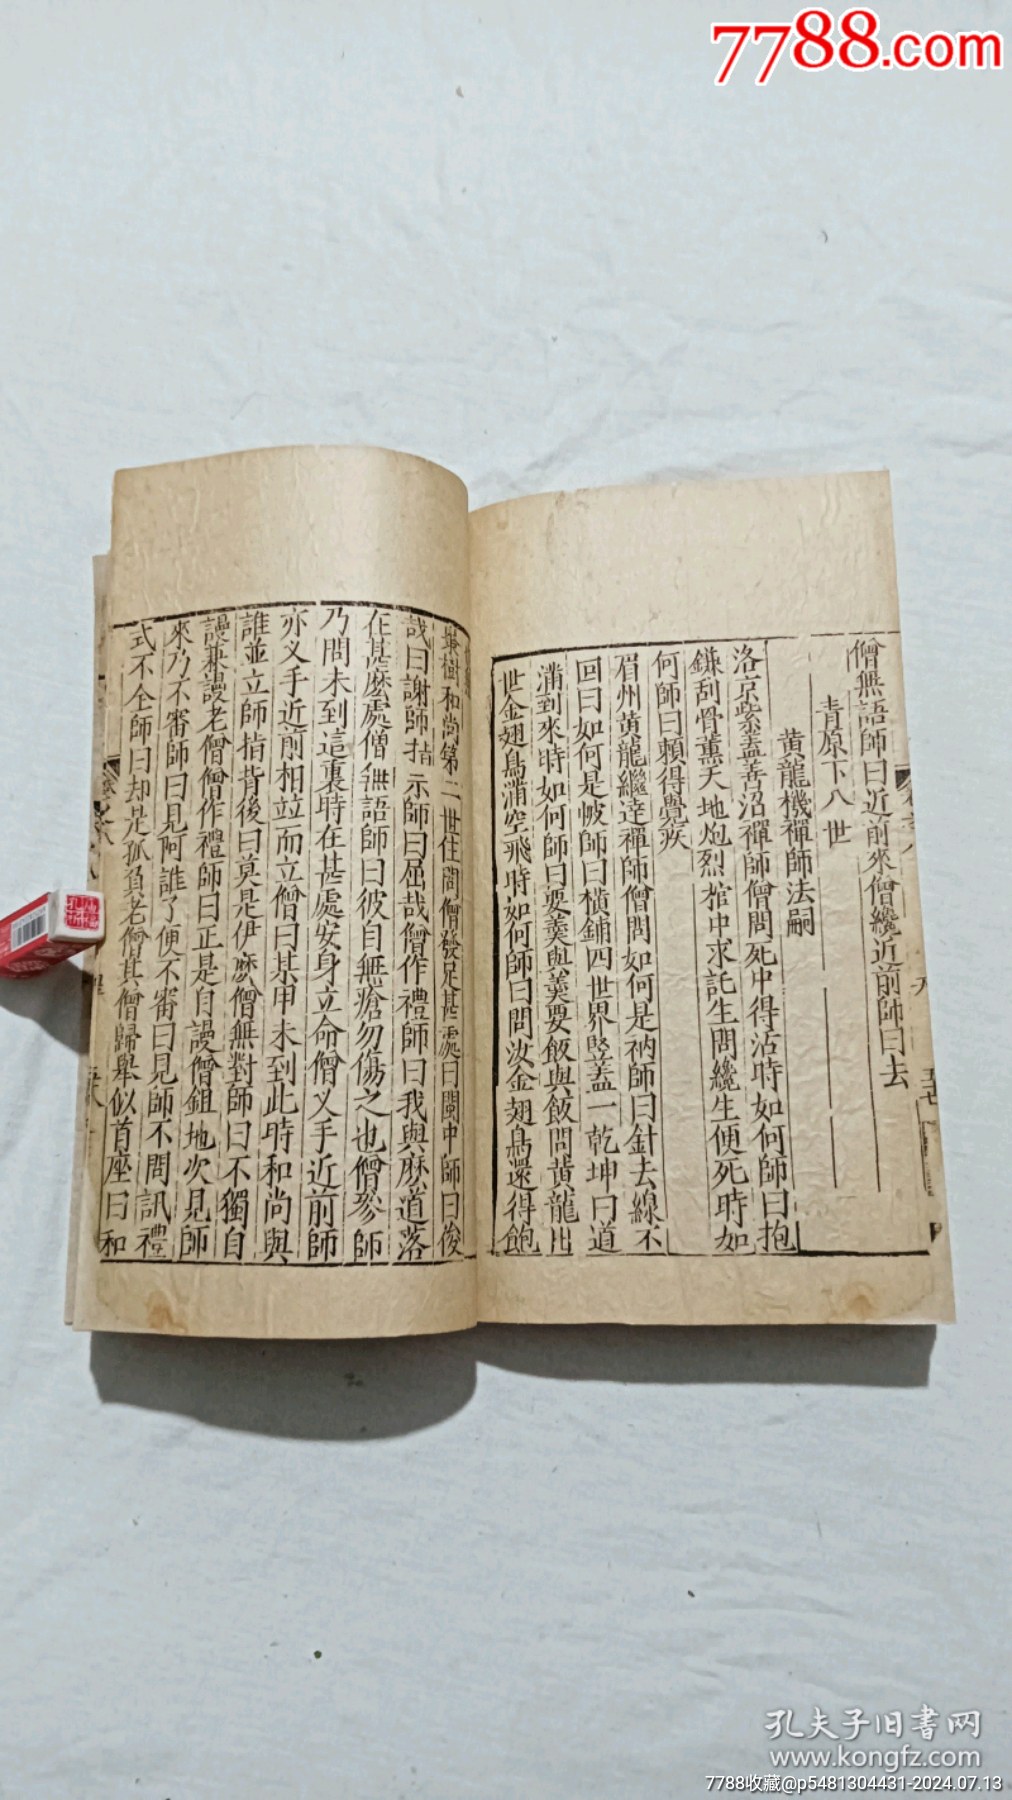 7788.com
僧無語師曰近前來僧纔近前師曰去
青原下八世
黄龍機禪師法嗣
洛京紫蓋善沼禪師僧問死中得活時如何師曰抱
鎌刮骨薰天地炮烈棺中求託生問纔生便死時如
何師曰賴得覺疾
眉州黄龍繼達禪師僧問如何是衲師曰針去線不
回曰如何是帔師曰横鋪四世界竪蓋一乾坤曰道
滿到來時如何師曰要羹與羹要飯與飯問黄龍出
世金翅鳥滿空飛時如何師曰問汝金翅鳥還得飽
樹和尚第二世住問僧發足甚處曰閩中師曰俊
哉曰謝師指示師曰屈哉僧作禮師曰我與麽道落
在甚麽處僧無語師曰彼自無瘡勿傷之也僧參師
乃問未到這裏時在甚處安身立命僧叉手近前師
亦叉手近前相竝而立僧曰某甲未到此時和尚與
誰並立師指背後曰莫是伊麽僧無對師曰不獨自
謾兼謾老僧僧作禮師曰正是自謾僧鉏地次見師
來乃不審師曰見阿誰了便不審曰見師不問訊禮
式不全師曰却是孤負老僧其僧歸舉似首座曰和
孔夫子旧書网
www.kongfz.com
7788收藏@p5481304431-2024.07.13